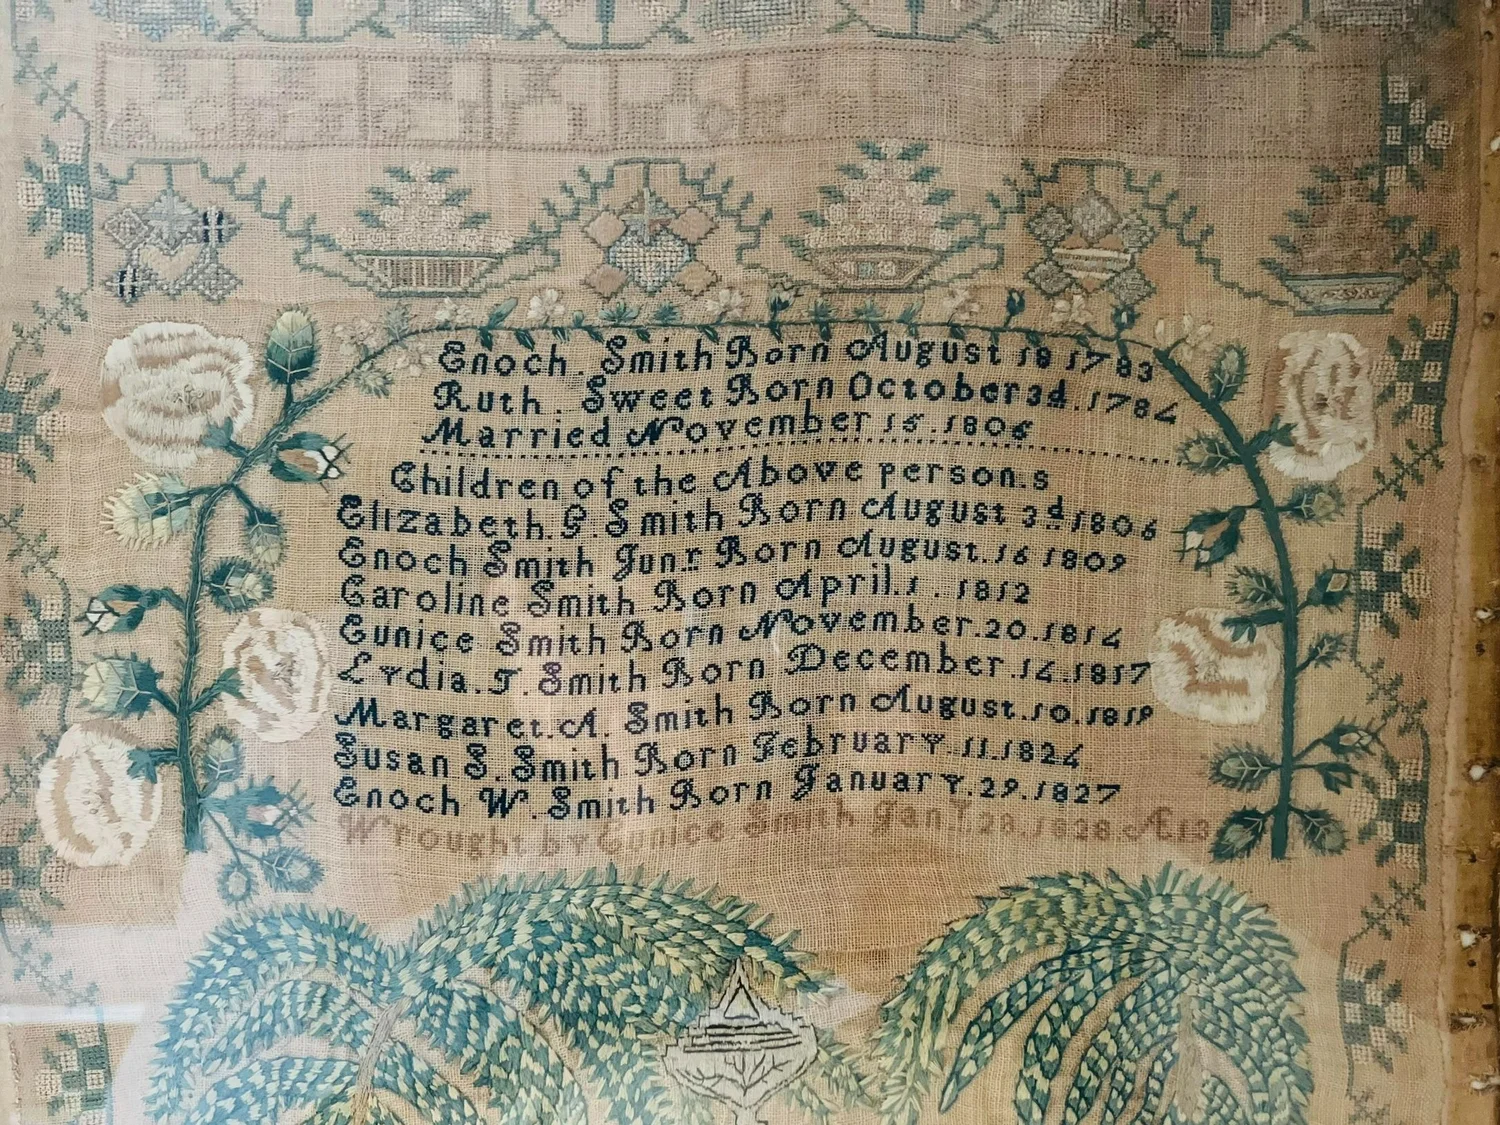 Enoch. Smith Born August 18 1783
Ruth. Sweet Born October 3d. 1784
Married November 15. 1806
Children of the Above person.s
Elizabeth. G. Smith Born August 3d 1806
Enoch Smith Junr Born August. 16 1809
Caroline Smith Born April. 1. 1812
Eunice Smith Born November. 20. 1814
Lydia. T. Smith Born December. 14. 1817
Margaret. A. Smith Born August. 10. 1819
Susan S. Smith Born February. 11. 1824
Enoch W. Smith Born January. 29. 1827
Wrought by Eunice Smith Jany 28. 1828. Æ 13